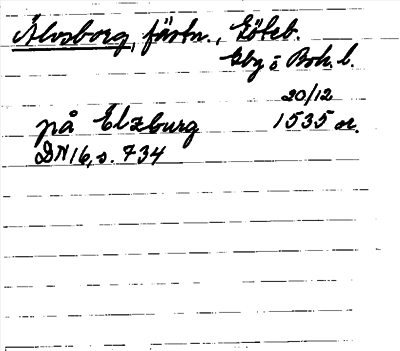 Älvsborg, fästn., Göteb.
och Boh. l.
20/12
på Elzburg 1535 or.
DN 16, s. 734